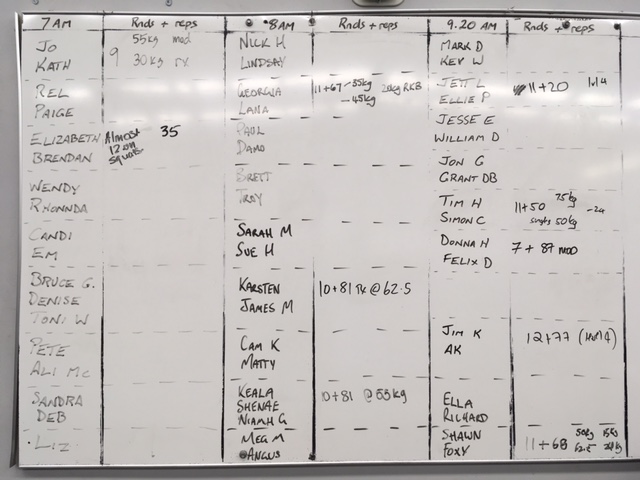 7AM Rnds + reps 8AM Rnds + reps 9.20 AM Rnds + reps
JO 55kg mod NICK H MARK D
KATH 9 30kg rx LINDSAY KEV W
REL GEORGIA 11+67 - 35kg 20kg RKB JETT L 11+20
PAIGE LANA - 45kg ELLIE P
ELIZABETH Almost 35 PAUL JESSE E
BRENDAN 12 on squats DAMO WILLIAM D
BRETT JON G
WENDY TROY GRANT DB
RHONNDA TIM H 11+50 75kg - 24
SIMON C 50kg
CANDI SARAH M DONNA H 7 + 87 MOD
EM SUE H FELIX D
BRUCE G. KARSTEN 10+81 rx @ 62.5
DENISE JAMES M
TONI W
PETE CAM K JIM K 12+77
ALI MC MATTY AK
SANDRA KEALA 10+81 @ 55kg ELLA
DEB SHENAE RICHARD
NIAMH G
LIZ MEG M SHAWN 11+68 50kg
ANGUS FOXY 62.5 24kg